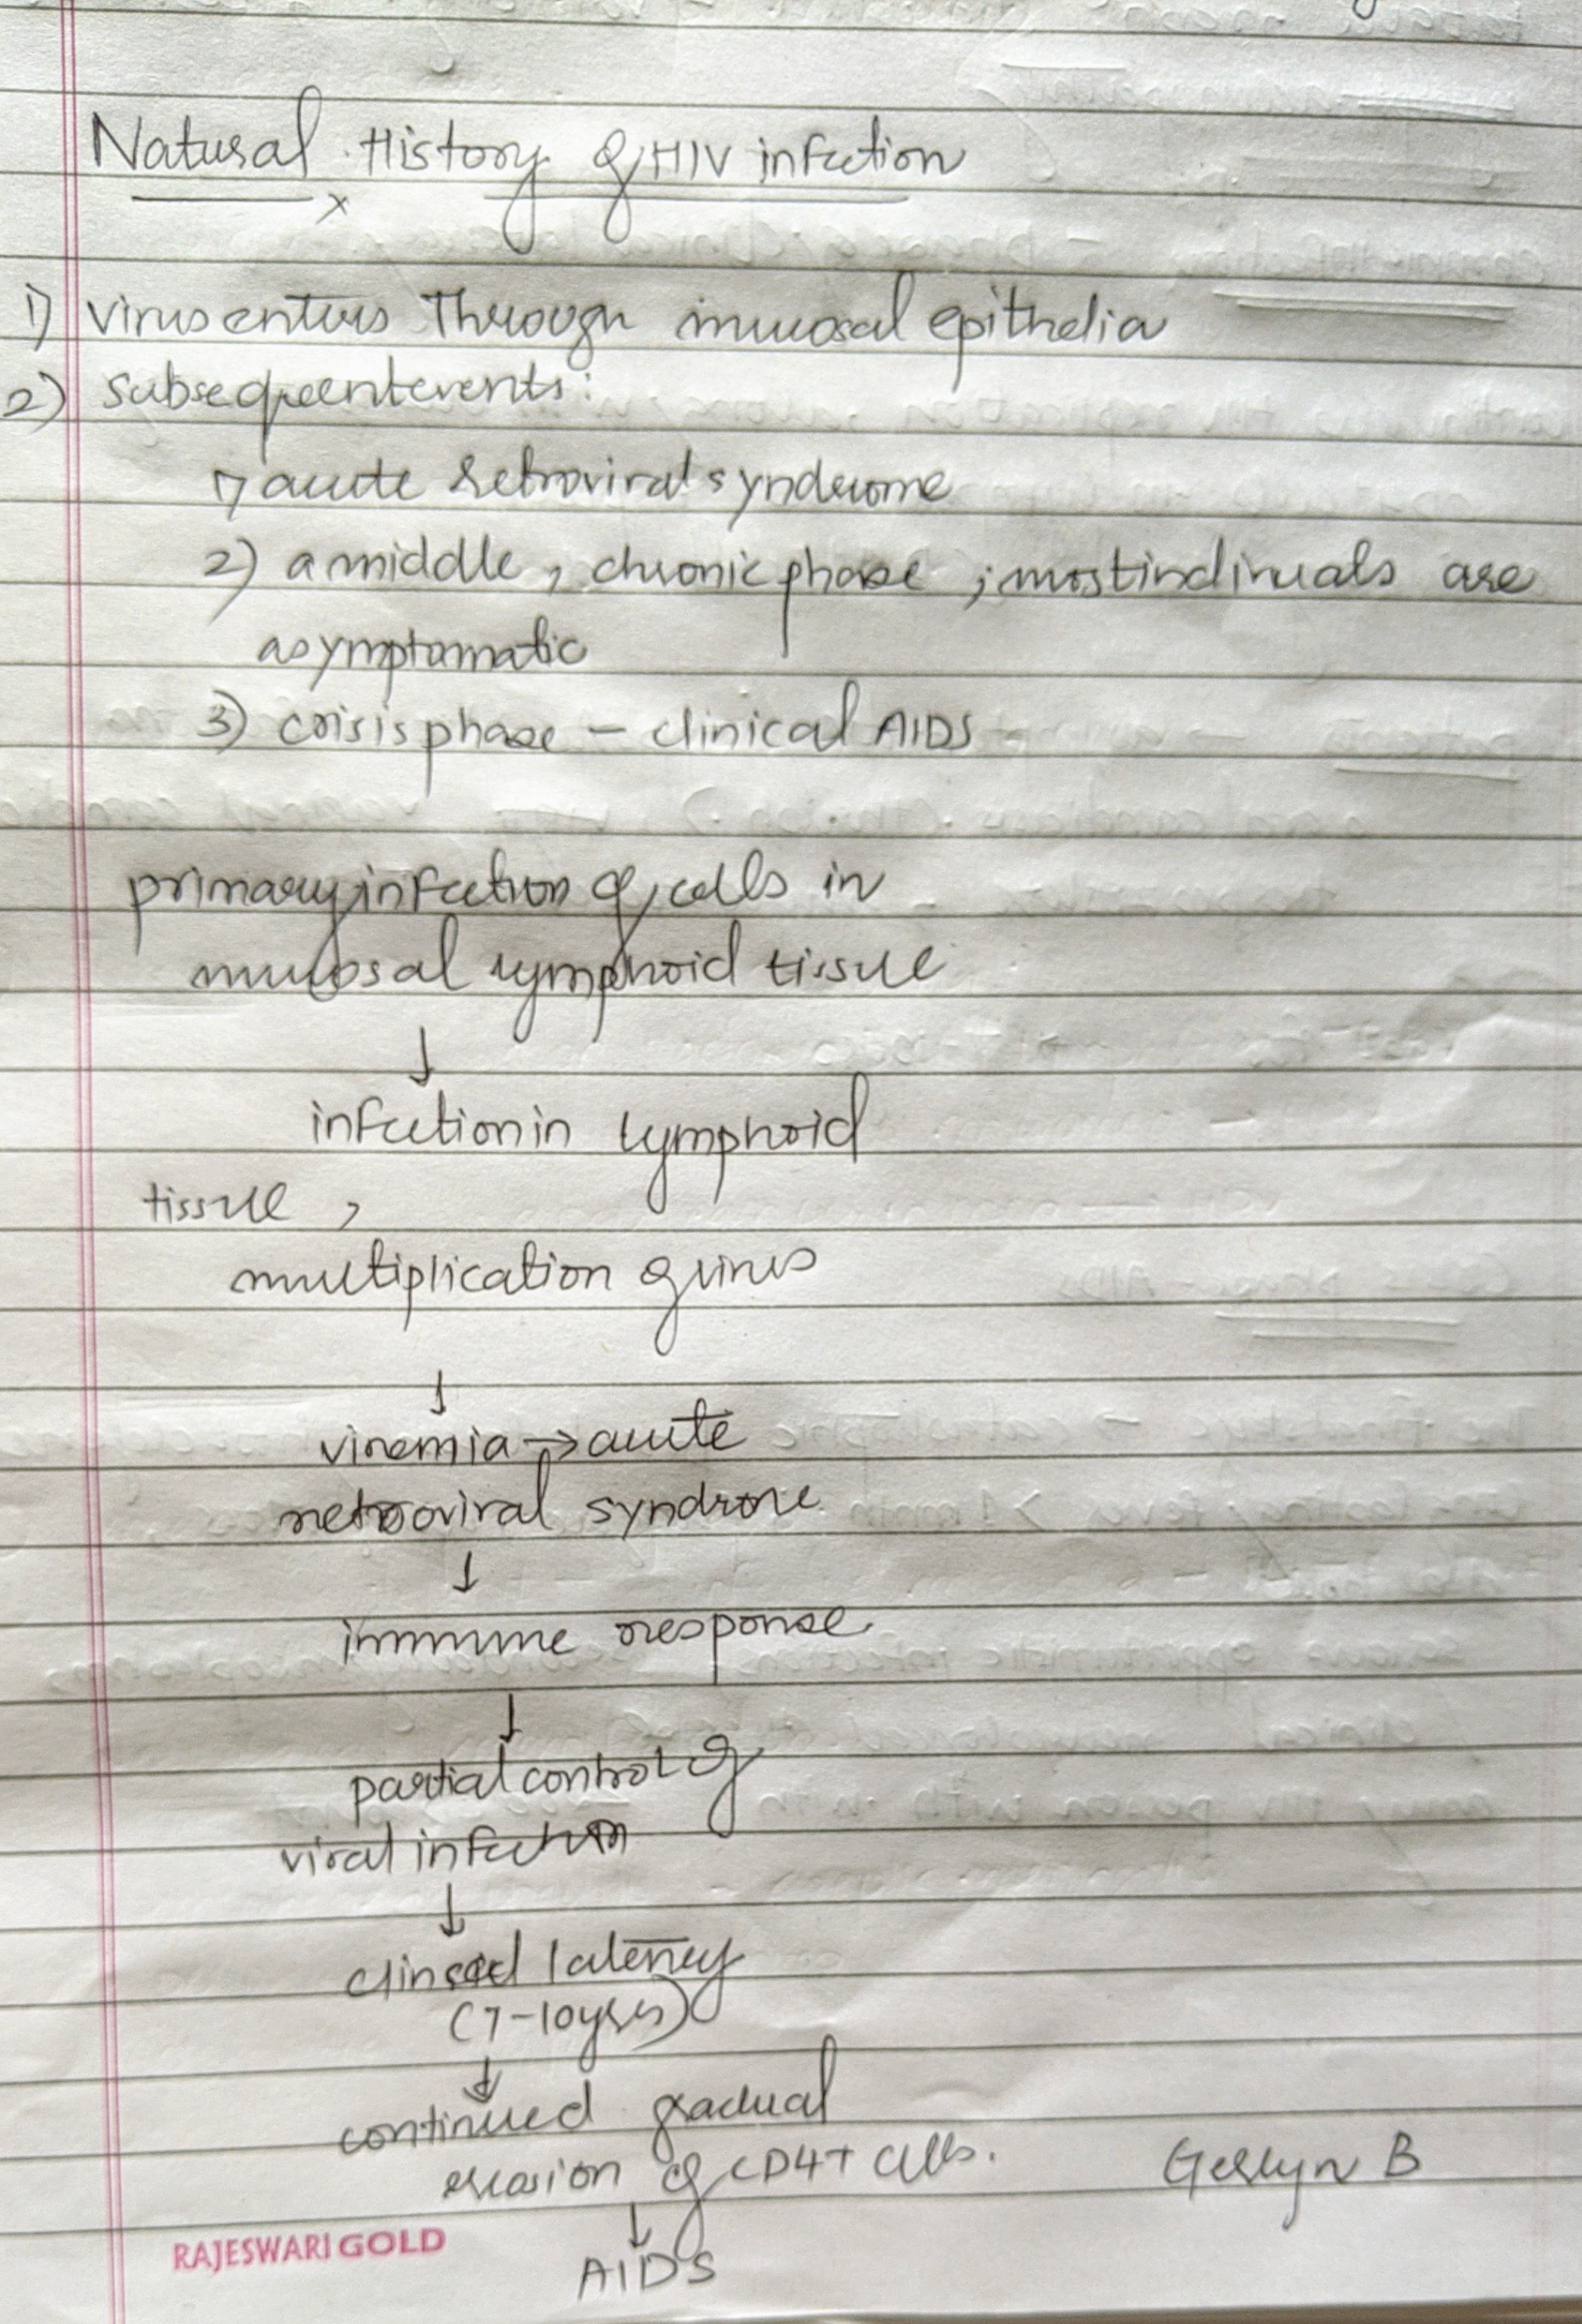 Natural History of HIV infection
1) virus enters Through mucosal epithelia
2) subsequent events:
1) acute retroviral syndrome
2) a middle, chronic phase ; most indivuals are
asymptomatic
3) crisis phase – clinical AIDS
primary infection of cells in
mucosal lymphoid tissue
↓
infection in lymphoid
tissue ,
multiplication of virus
↓
viremia → acute
retroviral syndrome
↓
immune response
↓
partial control of
viral infection
↓
clinical latency
(7-10yrs)
↓
continued gradual
erosion of CD4+ cells.
Gerlyn B
↓
RAJESWARI GOLD
AIDS